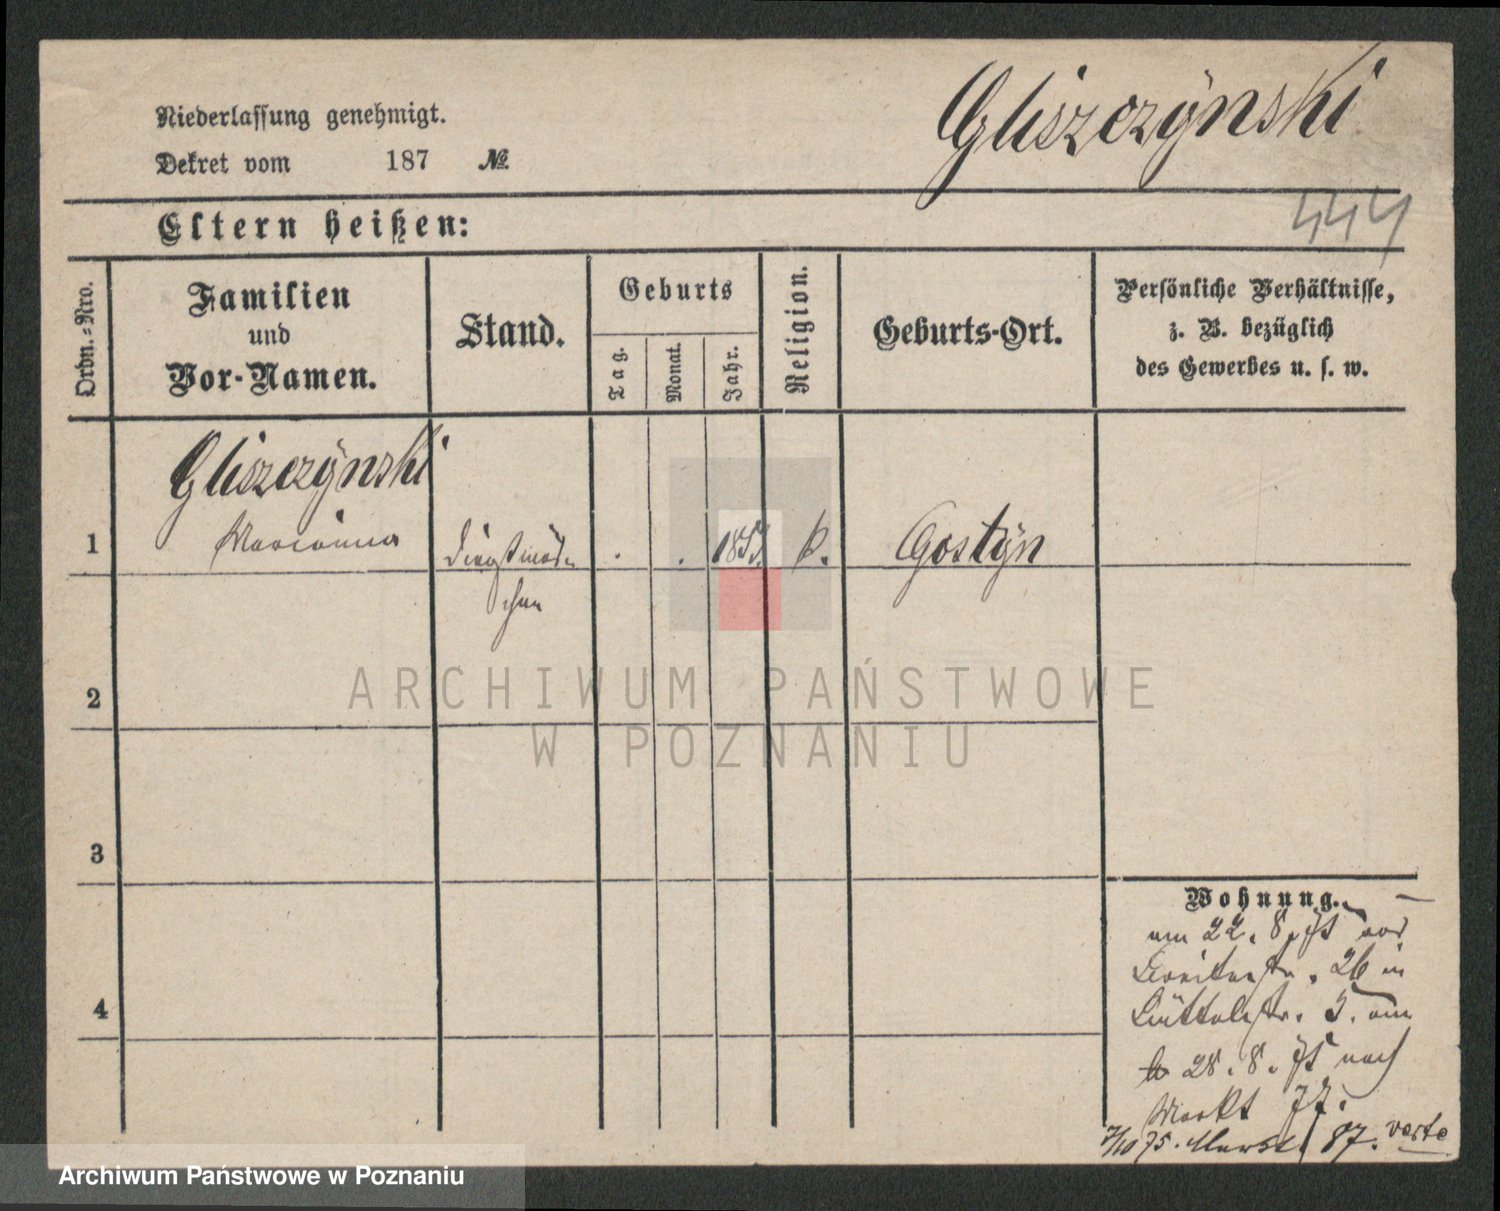 Gliszczÿnski
Niederlassung genehmigt.
Dekret vom 187 №
444
Eltern heißen:
Ordn.-Nro.
Familien
und
Vor-Namen.
Stand.
Geburts
Tag.
Monat.
Jahr.
Religion.
Geburts-Ort.
Persönliche Verhältnisse,
z. B. bezüglich
des Gewerbes u. s. w.
Gliszczÿnski
1 Marianna Dienstmäd- . . k. Gostÿn
chen
ARCHIWUM PAŃSTWOWE
2
W POZNANIU
3
Wohnung.
am 22. 8. 75 von
Breitestr. 26 in
Büttelstr. 5. am
28. 8. 75 nach
4
Markt 77.
7/10 75. Markt 87. verte
Archiwum Państwowe w Poznaniu